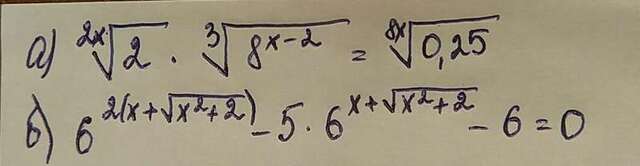 а) ²ˣ√2 · ³√(8^(x-2)) = ⁸ˣ√0,25
б) 6^(2(x+√(x²+2))) - 5 · 6^(x+√(x²+2)) - 6 = 0